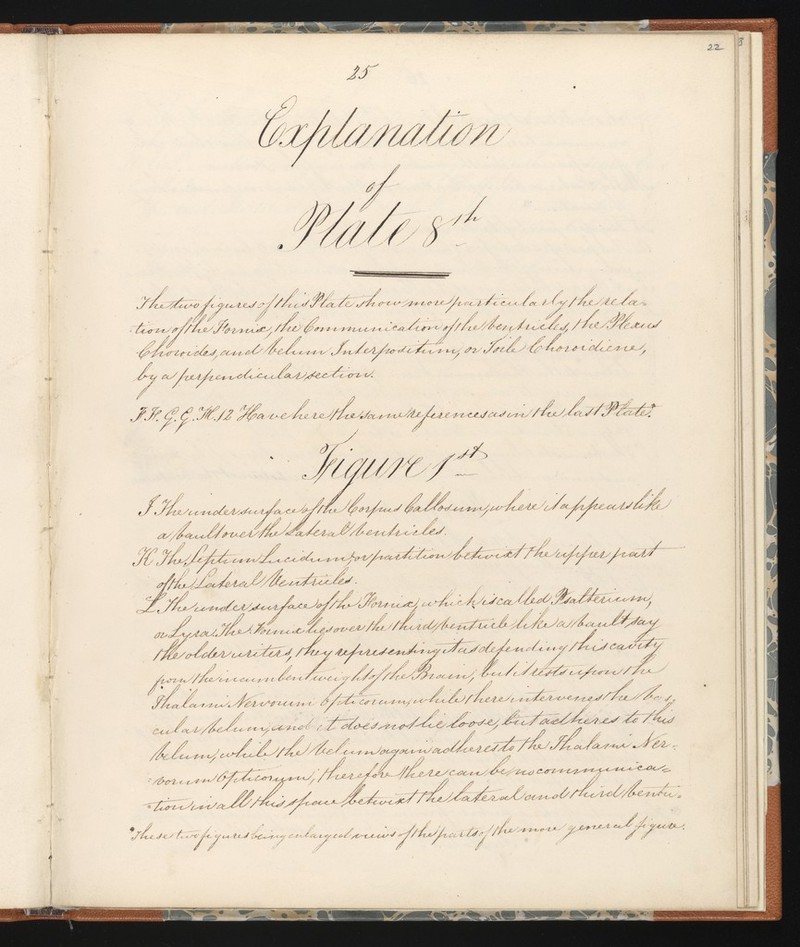 22
25
Explanation
of
Plate 8th
The two figures of this Plate show more particularly the rela-
tion of the Fornix, the Communication of the Ventricles, the Plexus
Choroides, and Velum Interpositum, or Toile Choroidiene,
by a perpendicular section.
F.F. G.G. H. 12 Have here the same references as in the last Plate.*
Figure 1st
I The under surface of the Corpus Callosum, where it appears like
a Vault over the Lateral Ventricles.
K The Septum Lucidum, or partition betwixt the upper part
of the Lateral Ventricles.
L The under surface of the Fornix, which is called Psalterium,
or Lyra. The Fornix lies over the third Ventricle like a Vault, say
the older writers, they representing it as defending this cavity
from the incumbent weight of the Brain, but it rests upon the
Thalami Nervorum Opticorum, while there intervenes the Vas-
cular Velum, and it does not lie loose, but adheres to this
Velum, while the Velum again adheres to the Thalami Ner-
vorum Opticorum; therefore there can be no communica-
tion in all this space betwixt the lateral and third Ventri-
*These two figures being enlarged views of the parts of the more general figure.